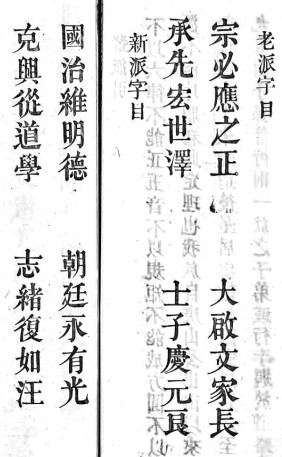 老派字目
宗必應之正 大啟文家長
承先宏世澤 士子慶元良
新派字目
國治維明德 朝廷永有光
克興從道學 志緒復如汪